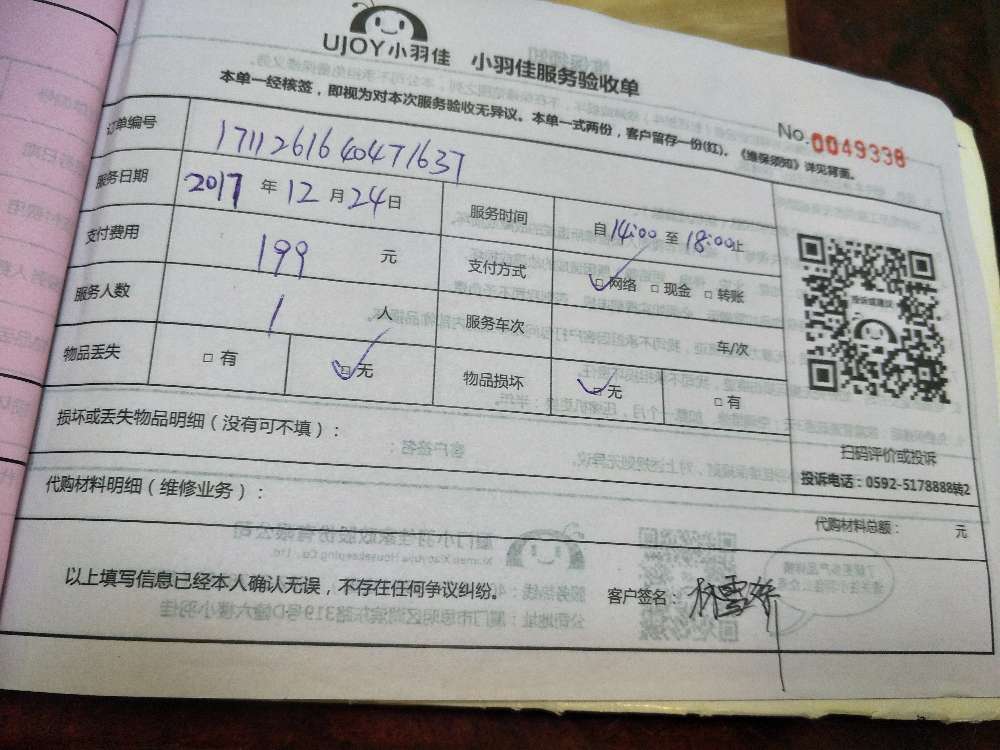 UJOY小羽佳 小羽佳服务验收单
本单一经核签，即视为对本次服务验收无异议。本单一式两份，客户留存一份(红)。《维保须知》详见背面。
No.0049338
订单编号 1711261640471637
服务日期 2017年12月24日 服务时间 自14:00至18:00止
支付费用 199 元 支付方式 □网络 □现金 □转账
服务人数 1 人 服务车次 车/次
物品丢失 □有 □无 物品损坏 □无 □有
投诉或建议
扫码评价或投诉
投诉电话：0592-5178888转2
损坏或丢失物品明细（没有可不填）：
代购材料明细（维修业务）：
代购材料总额： 元
以上填写信息已经本人确认无误，不存在任何争议纠纷。
客户签名：林雪娇